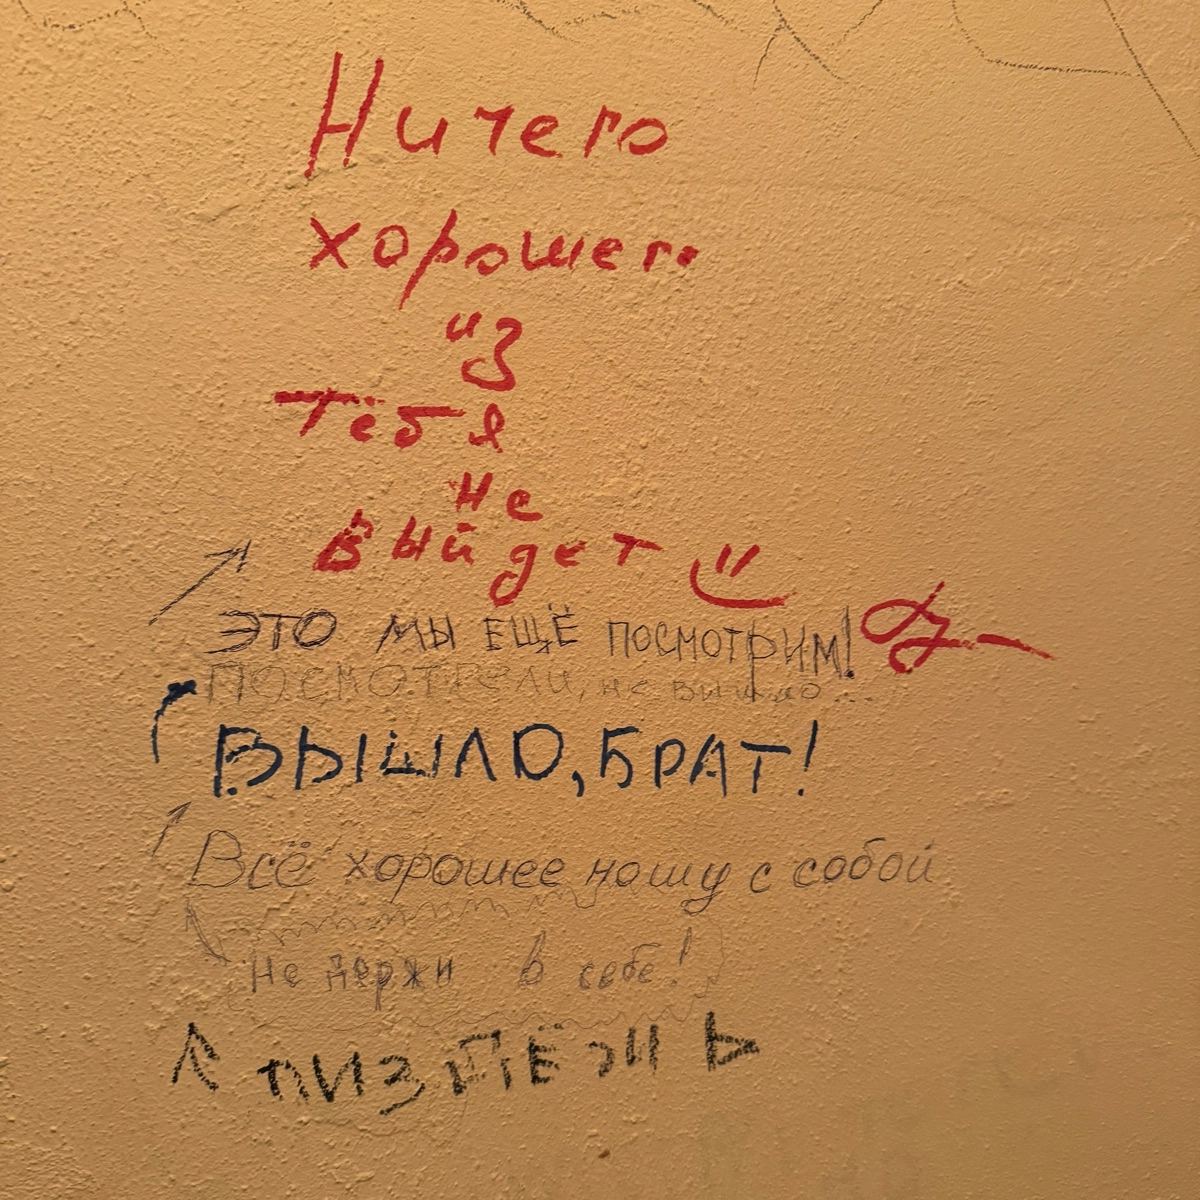 Ничего
хорошего
из
тебя
не
выйдет
ЭТО МЫ ЕЩЁ ПОСМОТРИМ!
ПОСМОТРЕЛИ, не вышло...
ВЫШЛО, БРАТ!
Всё хорошее ношу с собой
Не держи в себе!
ПИЗДЁЖЬ